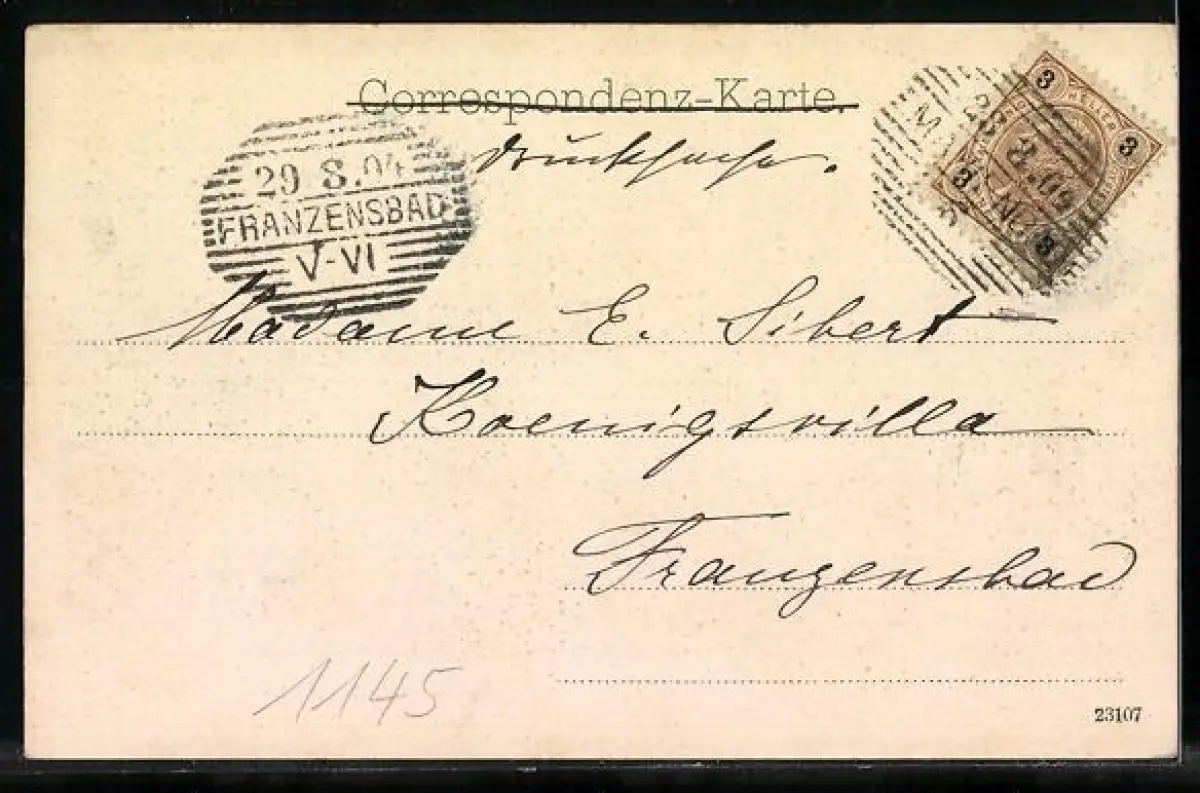 Correspondenz-Karte.
Drucksache.
29 8.04
FRANZENSBAD
V-VI
3 3
HELLER
3 3
Madame E. Sibert
Koenigsvilla
Franzensbad
1145
23107